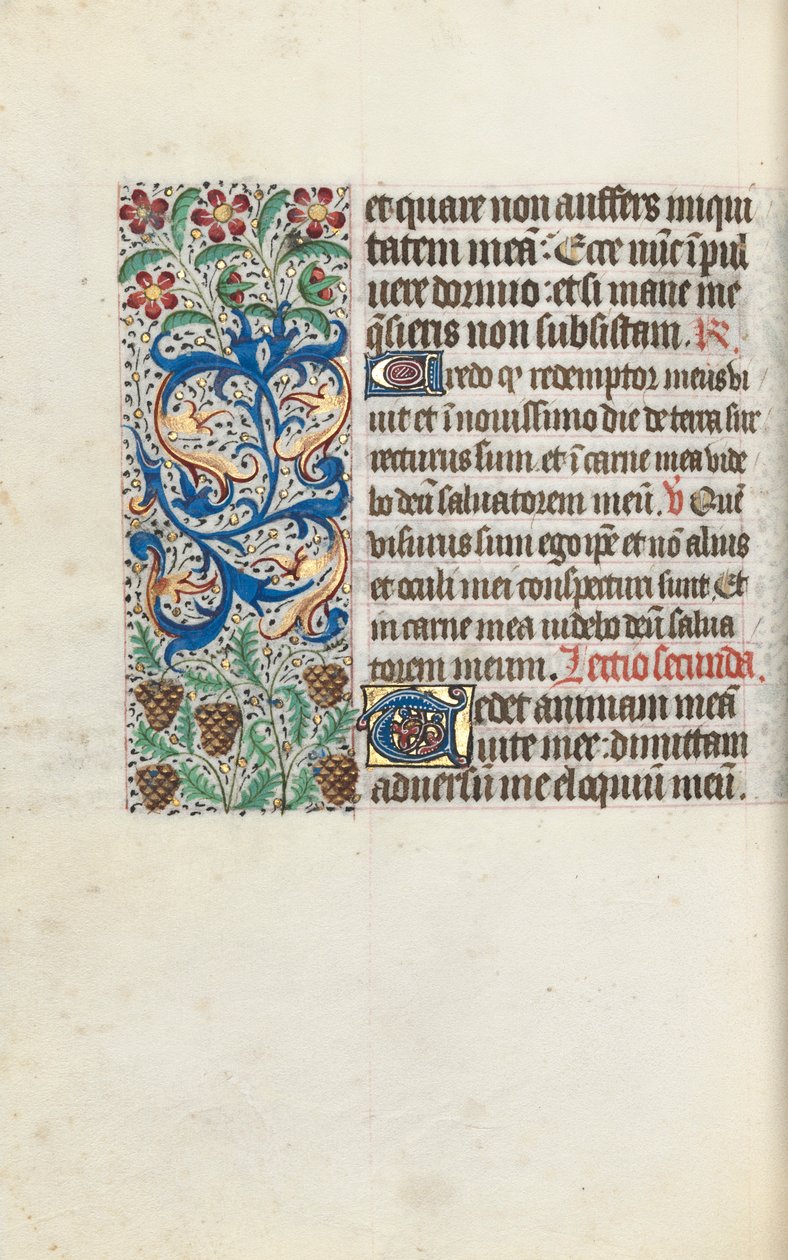 et quare non auffers iniqui
tatem meā: Ecce nūc ī pul
uere dormio: et si mane me
q̄sieris non subsistam. R.
Credo qꝫ redemptor meus vi
uit et ī nouissimo die de terra sur
recturus sum. et ī carne mea vide
bo deū saluatorem meū. V Quē
visurus sum ego ip̄e et nō alius
et oculi mei conspecturi sunt Et
in carne mea uidebo deū salua
torem meum. Lectio secunda.
Tedet animam meā
vite mee: dimittam
aduersū me eloquiū meū.